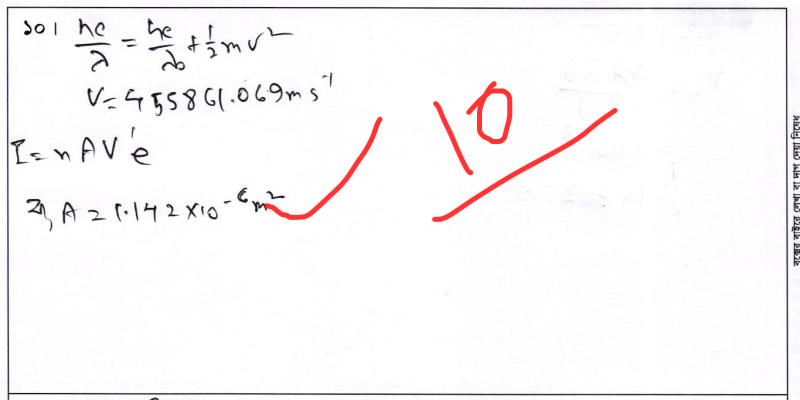 ১০। hc/λ = hc/λ₀ + 1/2 m v²
V = 455861.069 m s⁻¹
I = n A V' e
বা, A = 1.142 × 10⁻⁶ m²
10
বক্সের বাইরে লেখা বা দাগ দেয়া নিষেধ